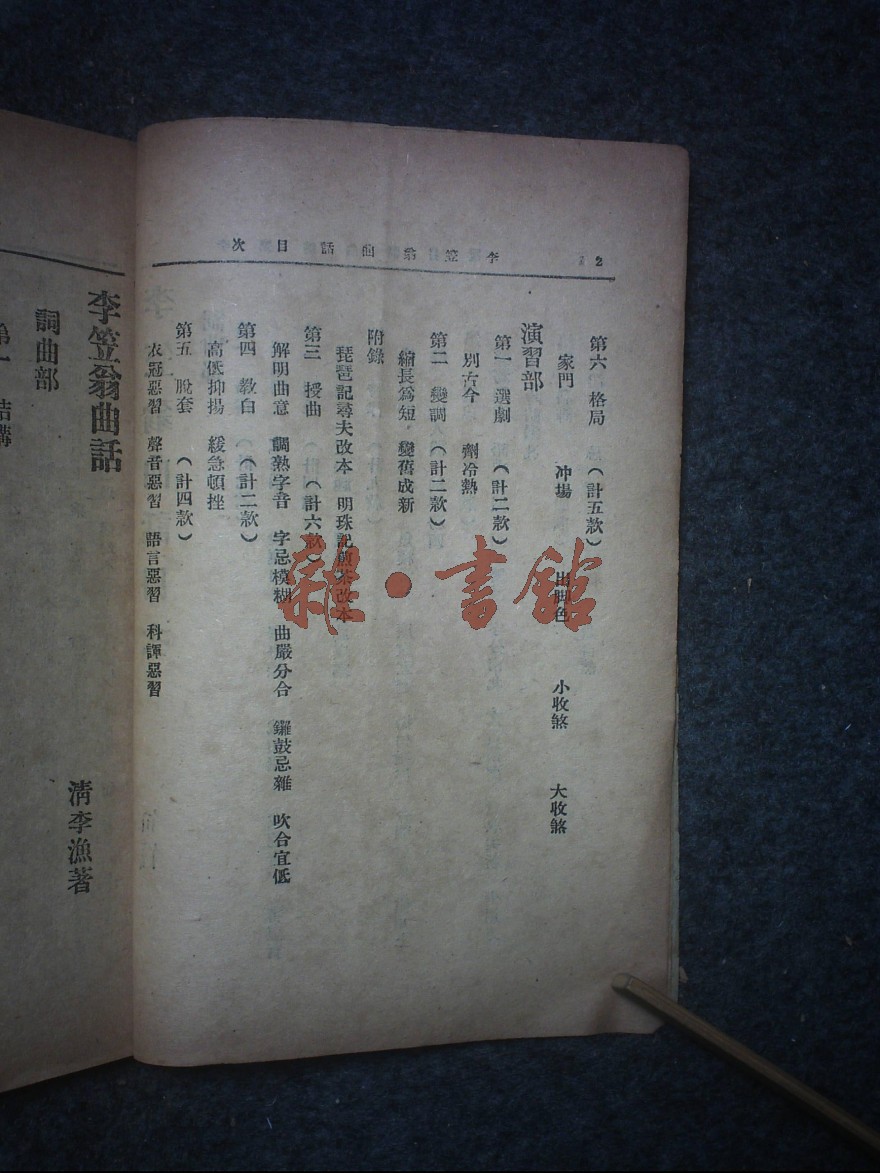 李笠翁曲話目次
2
第六 格局 (計五款)
家門 冲場 出脚色 小收煞 大收煞
演習部
第一 選劇 (計二款)
別古今 劑冷熱
第二 變調 (計二款)
縮長爲短 變舊成新
附錄
琵琶記尋夫改本 明珠記煎茶改本
第三 授曲 (計六款)
解明曲意 調熟字音 字忌模糊 曲嚴分合 鑼鼓忌雜 吹合宜低
第四 教白 (計二款)
高低抑揚 緩急頓挫
第五 脫套 (計四款)
衣冠惡習 聲音惡習 語言惡習 科諢惡習
李笠翁曲話
清李漁著
詞曲部
第一 結構
雜·書館